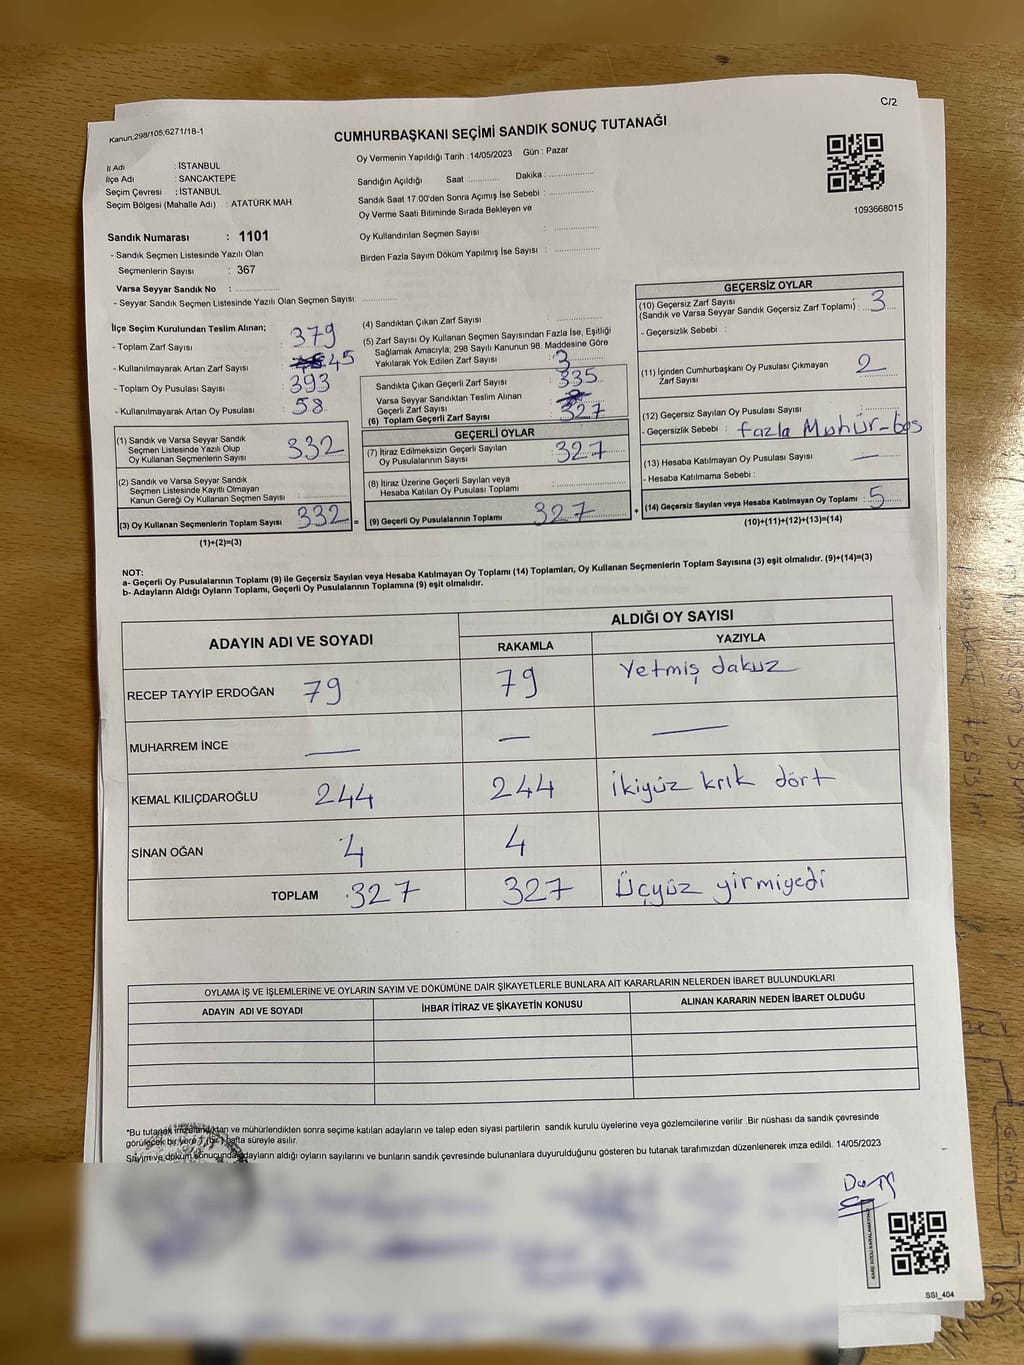 C/2
Kanun;298/105,6271/18-1
CUMHURBAŞKANI SEÇİMİ SANDIK SONUÇ TUTANAĞI
İl Adı : İSTANBUL
İlçe Adı : SANCAKTEPE
Seçim Çevresi : İSTANBUL
Seçim Bölgesi (Mahalle Adı) : ATATÜRK MAH.
Oy Vermenin Yapıldığı Tarih :14/05/2023 Gün : Pazar
Sandığın Açıldığı Saat :.......... Dakika :..............
Sandık Saat 17:00'den Sonra Açımış İse Sebebi :..............
Oy Verme Saati Bitiminde Sırada Bekleyen ve
Oy Kullandırılan Seçmen Sayısı :..............
Birden Fazla Sayım Döküm Yapılmış İse Sayısı :..............
1093668015
Sandık Numarası : 1101
- Sandık Seçmen Listesinde Yazılı Olan
Seçmenlerin Sayısı : 367
Varsa Seyyar Sandık No :..............
- Seyyar Sandık Seçmen Listesinde Yazılı Olan Seçmen Sayısı:..............
İlçe Seçim Kurulundan Teslim Alınan;
- Toplam Zarf Sayısı : 379
- Kullanılmayarak Artan Zarf Sayısı : 45
- Toplam Oy Pusulası Sayısı : 393
- Kullanılmayarak Artan Oy Pusulası : 58
(1) Sandık ve Varsa Seyyar Sandık
Seçmen Listesinde Yazılı Olup
Oy Kullanan Seçmenlerin Sayısı : 332
(2) Sandık ve Varsa Seyyar Sandık
Seçmen Listesinde Kayıtlı Olmayan
Kanun Gereği Oy Kullanan Seçmen Sayısı :..............
(3) Oy Kullanan Seçmenlerin Toplam Sayısı : 332 =
(1)+(2)=(3)
(4) Sandıktan Çıkan Zarf Sayısı :..............
(5) Zarf Sayısı Oy Kullanan Seçmen Sayısından Fazla İse, Eşitliği
Sağlamak Amacıyla; 298 Sayılı Kanunun 98. Maddesine Göre
Yakılarak Yok Edilen Zarf Sayısı : 3
Sandıkta Çıkan Geçerli Zarf Sayısı : 335
Varsa Seyyar Sandıktan Teslim Alınan
Geçerli Zarf Sayısı :
(6) Toplam Geçerli Zarf Sayısı : 327
GEÇERLİ OYLAR
(7) İtiraz Edilmeksizin Geçerli Sayılan
Oy Pusulalarının Sayısı : 327
(8) İtiraz Üzerine Geçerli Sayılan veya
Hesaba Katılan Oy Pusulası Toplamı :..............
(9) Geçerli Oy Pusulalarının Toplamı : 327 +
GEÇERSİZ OYLAR
(10) Geçersiz Zarf Sayısı
(Sandık ve Varsa Seyyar Sandık Geçersiz Zarf Toplamı) : 3
- Geçersizlik Sebebi :
(11) İçinden Cumhurbaşkanı Oy Pusulası Çıkmayan
Zarf Sayısı : 2
(12) Geçersiz Sayılan Oy Pusulası Sayısı :
- Geçersizlik Sebebi : fazla Mühür-boş
(13) Hesaba Katılmayan Oy Pusulası Sayısı : —
- Hesaba Katılmama Sebebi :
(14) Geçersiz Sayılan veya Hesaba Katılmayan Oy Toplamı : 5
(10)+(11)+(12)+(13)=(14)
NOT:
a- Geçerli Oy Pusulalarının Toplamı (9) ile Geçersiz Sayılan veya Hesaba Katılmayan Oy Toplamı (14) Toplamları, Oy Kullanan Seçmenlerin Toplam Sayısına (3) eşit olmalıdır. (9)+(14)=(3)
b- Adayların Aldığı Oyların Toplamı, Geçerli Oy Pusulalarının Toplamına (9) eşit olmalıdır.
ADAYIN ADI VE SOYADI
ALDIĞI OY SAYISI
RAKAMLA YAZIYLA
RECEP TAYYİP ERDOĞAN 79 79 Yetmiş dokuz
MUHARREM İNCE — — —
KEMAL KILIÇDAROĞLU 244 244 İkiyüz kırk dört
SİNAN OĞAN 4 4
TOPLAM 327 327 Üçyüz yirmiyedi
OYLAMA İŞ VE İŞLEMLERİNE VE OYLARIN SAYIM VE DÖKÜMÜNE DAİR ŞİKAYETLERLE BUNLARA AİT KARARLARIN NELERDEN İBARET BULUNDUKLARI
ADAYIN ADI VE SOYADI İHBAR İTİRAZ VE ŞİKAYETİN KONUSU ALINAN KARARIN NEDEN İBARET OLDUĞU
*Bu tutanak imzalandıktan ve mühürlendikten sonra seçime katılan adayların ve talep eden siyasi partilerin sandık kurulu üyelerine veya gözlemcilerine verilir .Bir nüshası da sandık çevresinde
görülecek bir yere 1 (bir) hafta süreyle asılır.
Sayım ve döküm sonucunda adayların aldığı oyların sayılarını ve bunların sandık çevresinde bulunanlara duyurulduğunu gösteren bu tutanak tarafımızdan düzenlenerek imza edildi. 14/05/2023
SSI_404